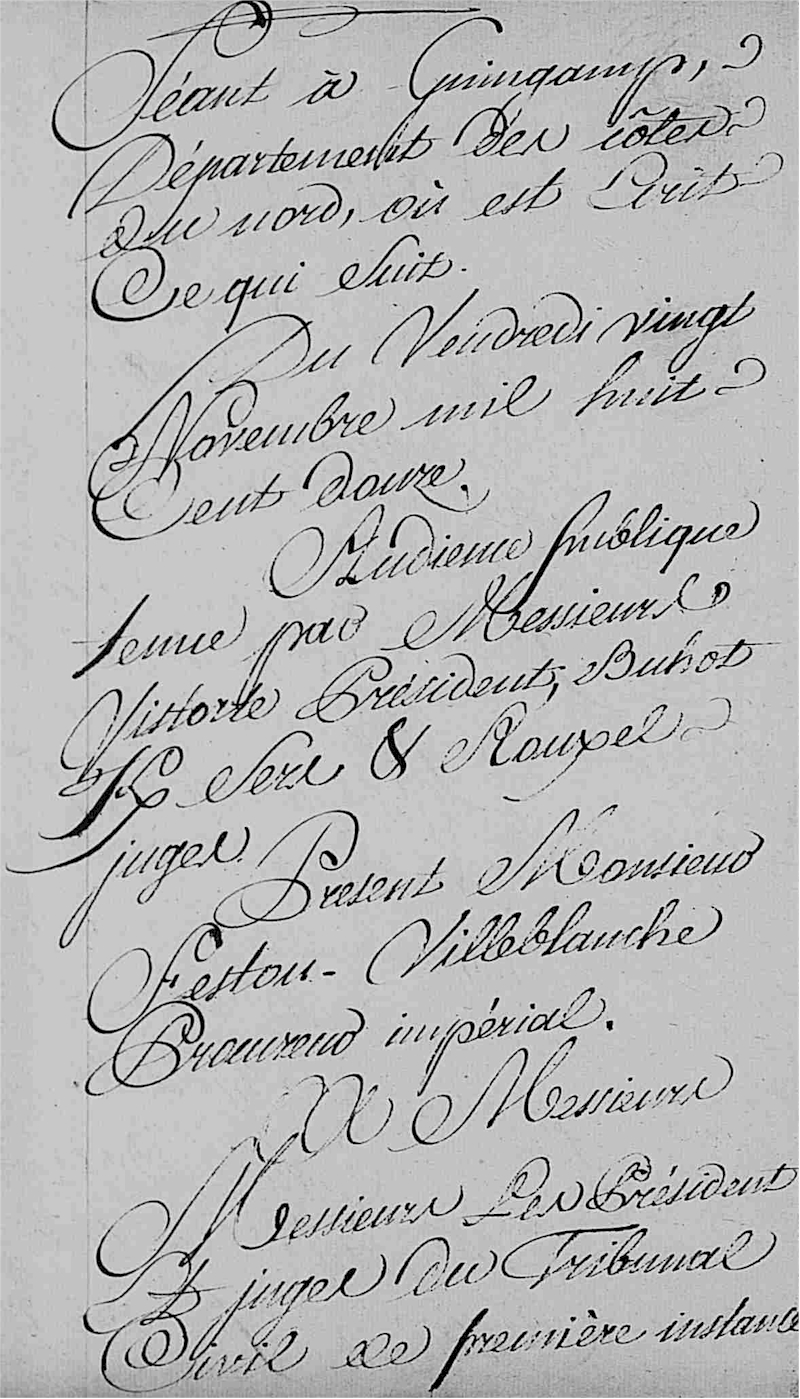 Séant à Guingamp,
Département des côtes
du nord, où est Ecrit
Ce qui Suit.
Du Vendredi vingt
Novembre mil huit
Cent douze.
Audience publique
tenue par Messieurs
Vistorte Président, Buhot
K Sers & Rouxel
juges.
Present Monsieur
Festou - Villeblanche
Procureur impérial.
A Messieurs
Messieurs Les Président
Et juges du Tribunal
Civil de première instance